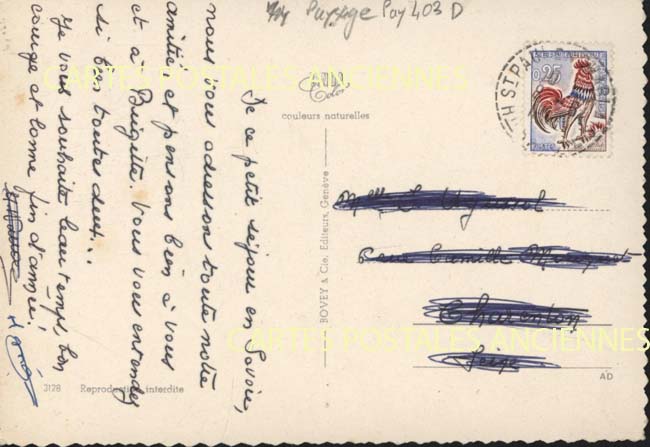 Paysage Pay 403 D
De ce petit séjour en Savoie,
nous vous adressons toute notre
amitié et pensons bien à vous
et à Brigitte. Vous vous entendez
si bien toutes deux...
Je vous souhaite beau temps, bon
courage et bonne fin d'année.
couleurs naturelles
BOVEY & Cie, Editeurs, Genève
0,25
H ST. PAUL
Charenton
3128 Reproduction interdite
AD
CARTES POSTALES ANCIENNES
CARTES POSTALES ANCIENNES